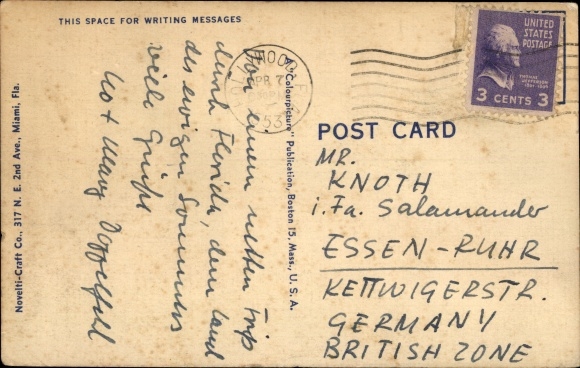 THIS SPACE FOR WRITING MESSAGES
Von einem netten Trip
durch Florida, dem Land
des ewigen Sommers
viele Grüße
Leo + Mary
Novelti-Craft Co., 317 N. E. 2nd Ave., Miami, Fla.
A "Colourpicture" Publication, Boston 15, Mass., U. S. A.
WOOD
APR 7
53
UNITED
STATES
POSTAGE
THOMAS
JEFFERSON
3 CENTS 3
POST CARD
MR.
KNOTH
i. Fa. Salamander
ESSEN-RUHR
KETTWIGERSTR.
GERMANY
BRITISH ZONE